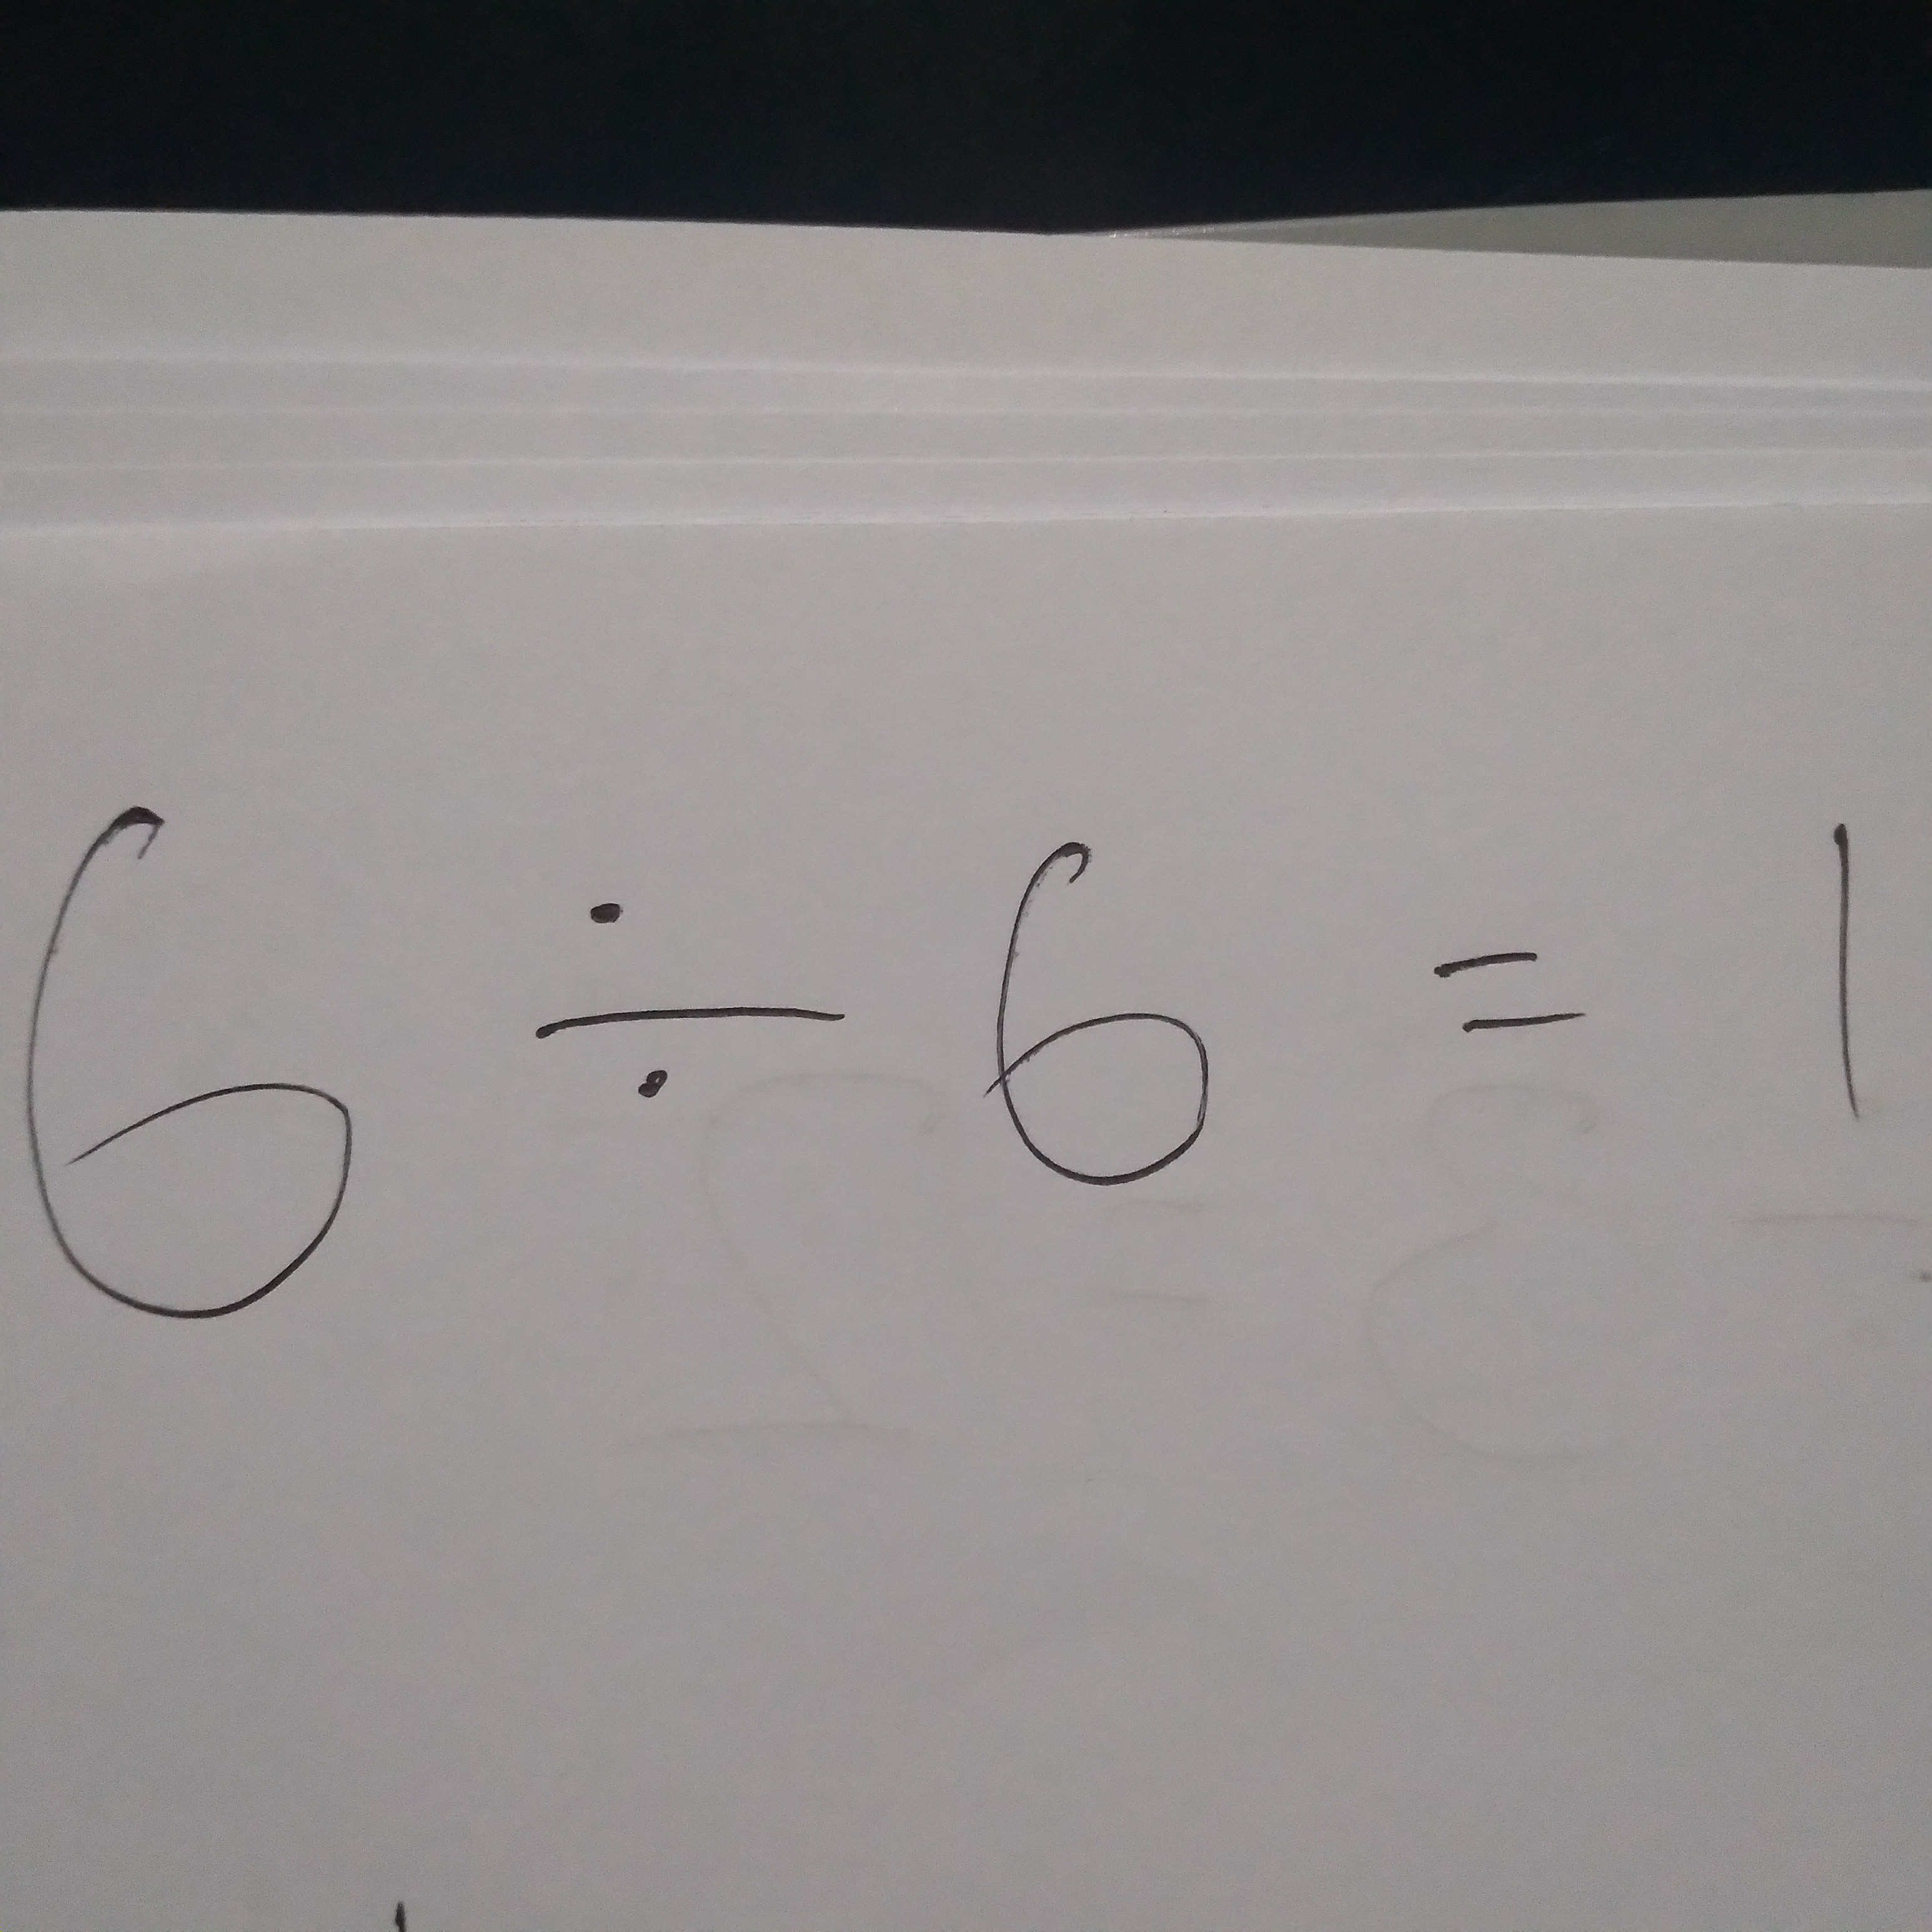 6 ÷ 6 = 1